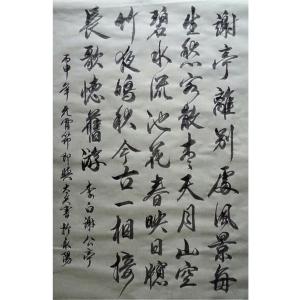 謝亭離別處風景每
生愁客散青天月山空
碧水流池花春映日牕
竹夜鳴秋今古一相接
長歌懷舊游 李白謝公亭
丙申年元宵節即興 書於